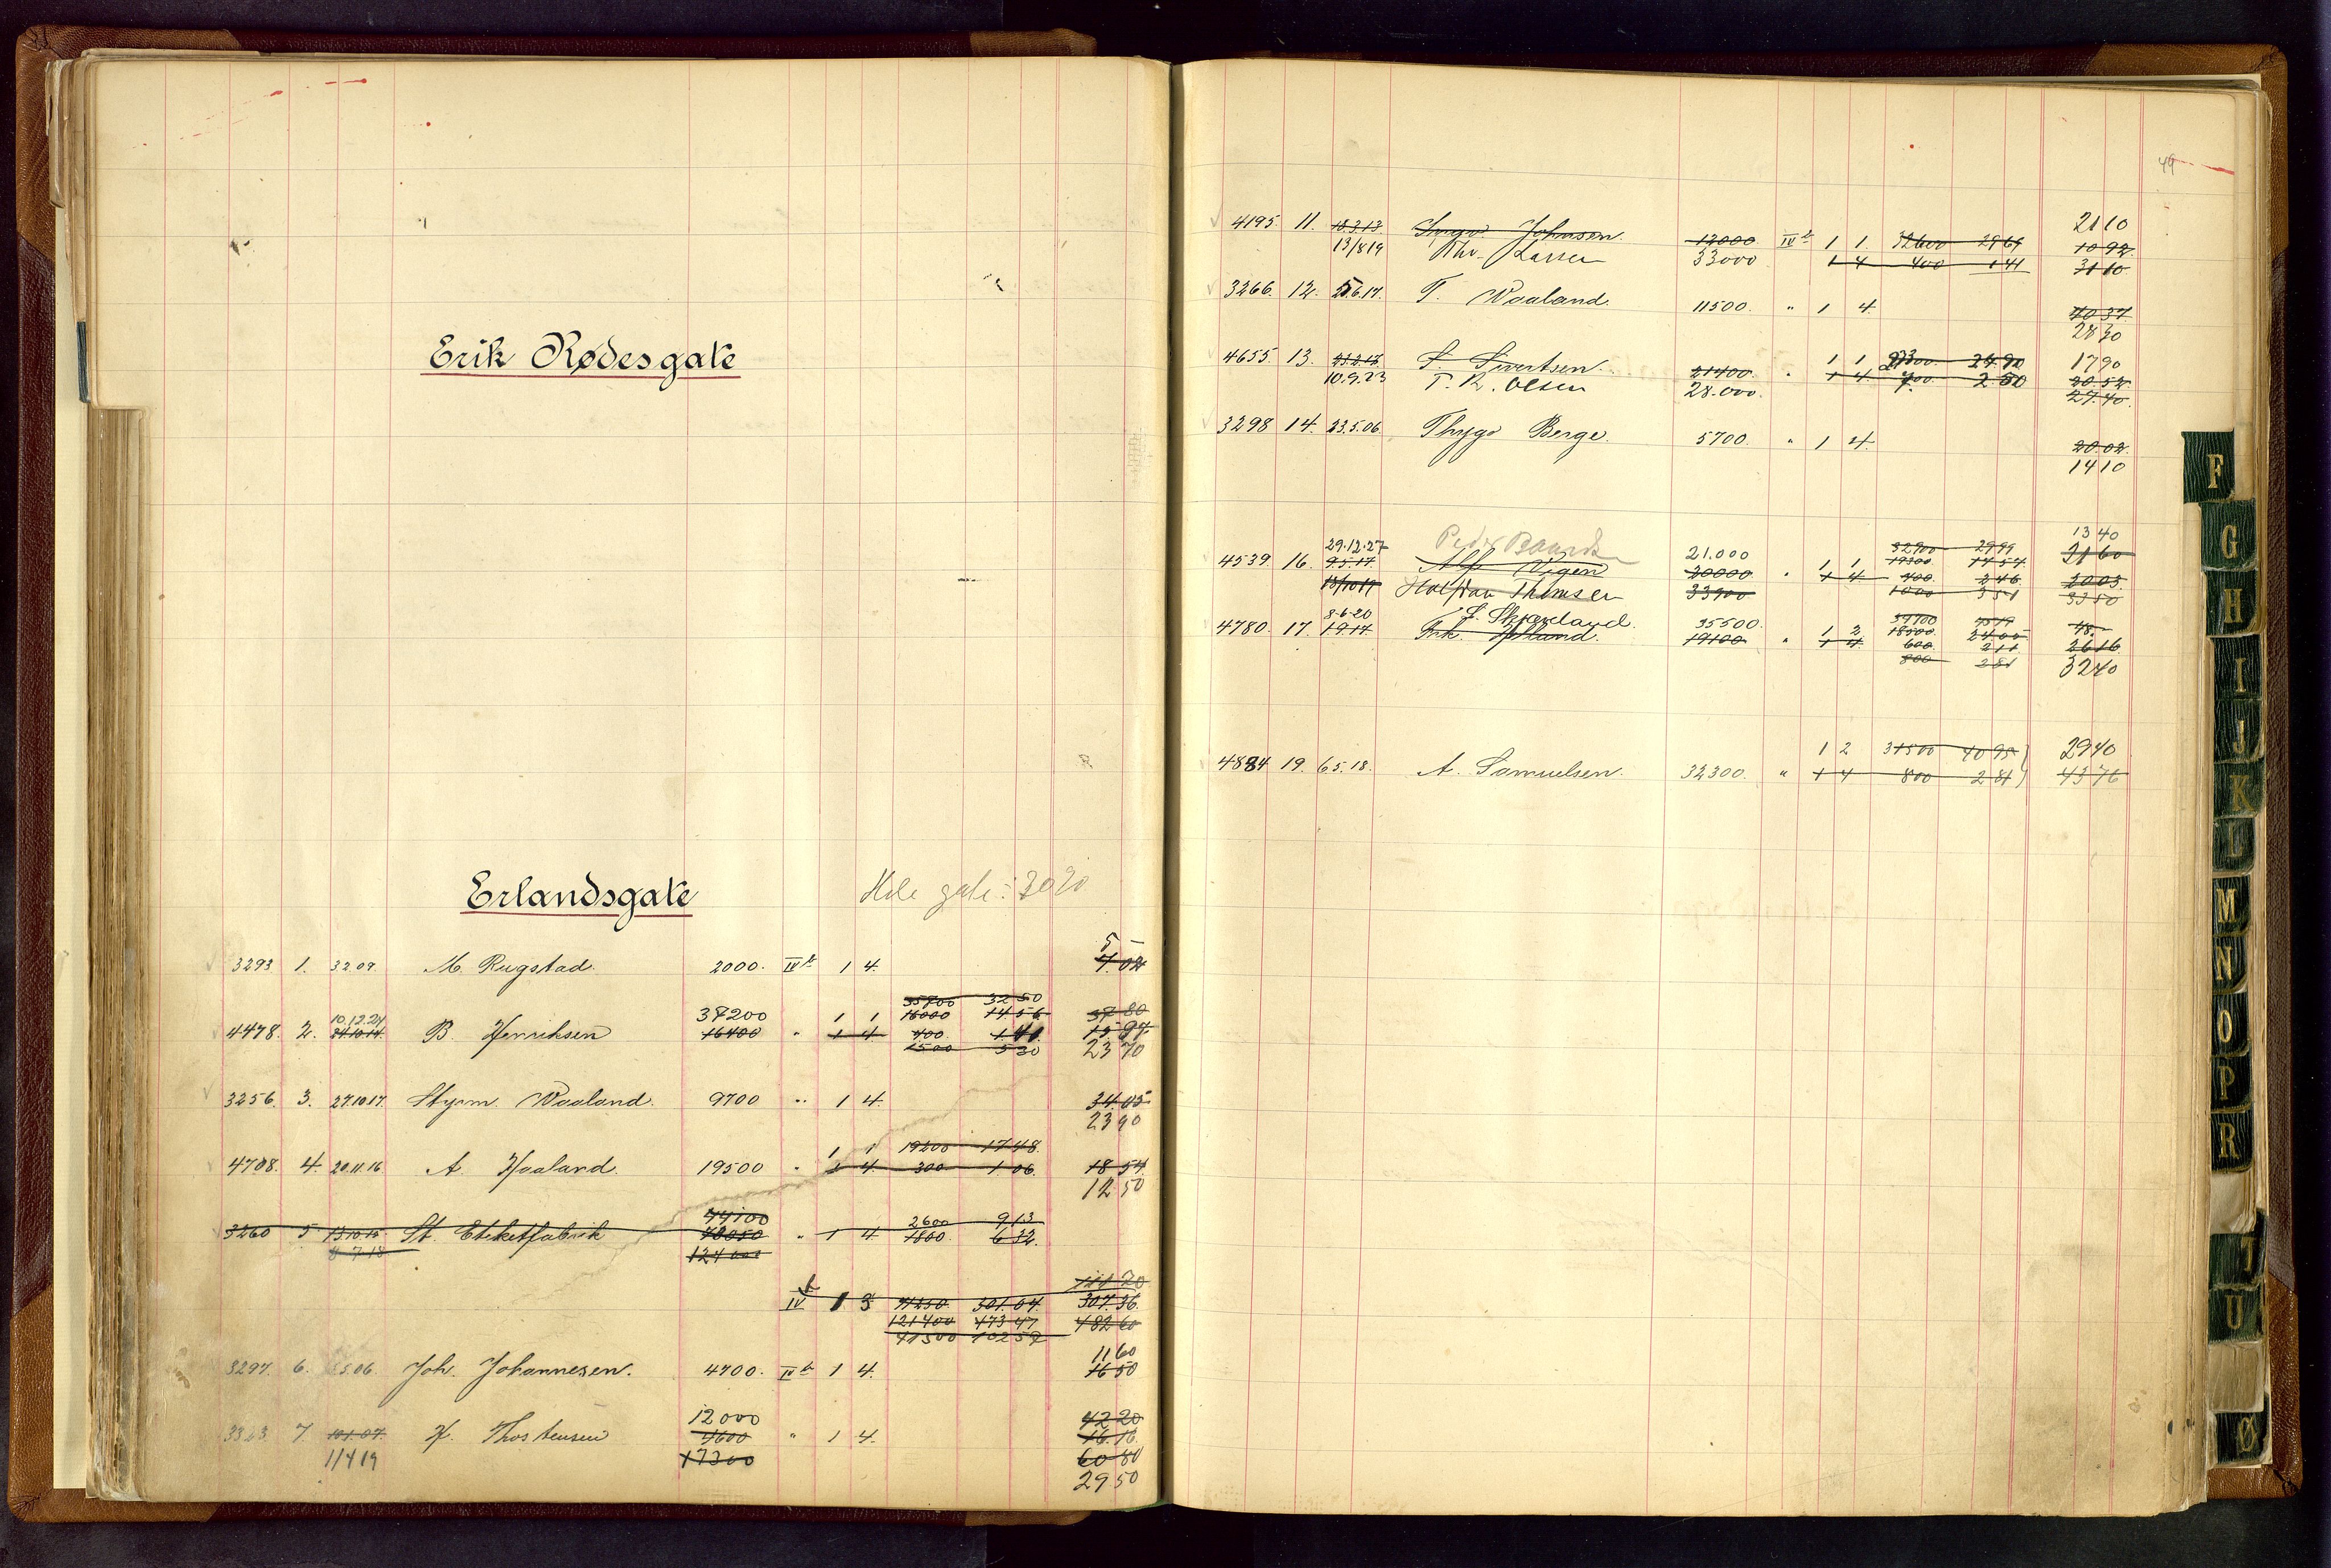 Erik Rødesgate
Erlandsgate
Hele gate: 3020
5 —
3293 1. 3.2.09. M. Rugstad. 2000. IV b 1 4. 7.02
35700 32 50
37200 1 1 16000 14 56 37 80
4478. 2. 10.12.24 B. Henriksen 16400 " 1 4 400 1 41 15.97
1500 5 30 23 70
3256. 3. 27.10.17. Waaland. 9700 " 1 4. 34.05
23 90
1 1 19200 17 48.
4708. 4. 20.11.16 A. Haaland. 19500 " 1 4 300 1.06. 18 54
12 50
44100 2600 9 13
3260 5 13.10.15 St. Etiketfabrik 78050 " 1 4 1800. 6 32.
124000
111 20
IV b 1 3 77250. 301.04. 307.36.
121400 473 47 482 60
41500
11 60
3297. 6. 5.06. Joh. Johannesen. 4700. IV b 1 4. 16 50
12000 42 20
3323. 7 10.1.07. H. Thorstensen 4600 " 1 4. 16.16.
11 4 19 17300 60 80
29 50
49
21 10
4195. 11. 18.3.13 Johnsen. 12000. IV b 1 1. 32600 29 69 10 92.
13/8 19 Larsen 33000 1 4 400 1 41 31 10
3266. 12. 25.6.17. T. Waaland. 11500. " 1 4. 40 37
28 30
4655. 13. 23.2.17 S. Sivertsen. 21400. " 1 1 27300. 24.90 17 90
10.9.23 T. R. Olsen 28.000. 1 4 700. 2 50 20.52.
27.40.
3298 14. 23.5.06. Thygo Berge. 5700. " 1 4. 20.02.
14 10
29.12.27 Peder 21.000 32900 29 99 13 40
4539. 16. 9.5.17. Alf Vigen 20000. " 1 1 19300 17 57 21 60
13/10 19 Halfdan Thomsen 33900 1 4 700. 2 46. 20 03.
1000 3 51 33 50
8-6-20 S. Skjæveland. 35500. 1 2 18500. 24.05 48.-
4780. 17. 1.9.17 19100 " 1 4 600. 2 11 26 16
800 2 81 32 40
1 2 31500 40 95 29 40
4884 19. 6.5.18. A. Samuelsen. 32300. " 1 4 800 2 81 43 76
F
G
H
I
J
K
L
M
N
O
P
R
T
U
Ø